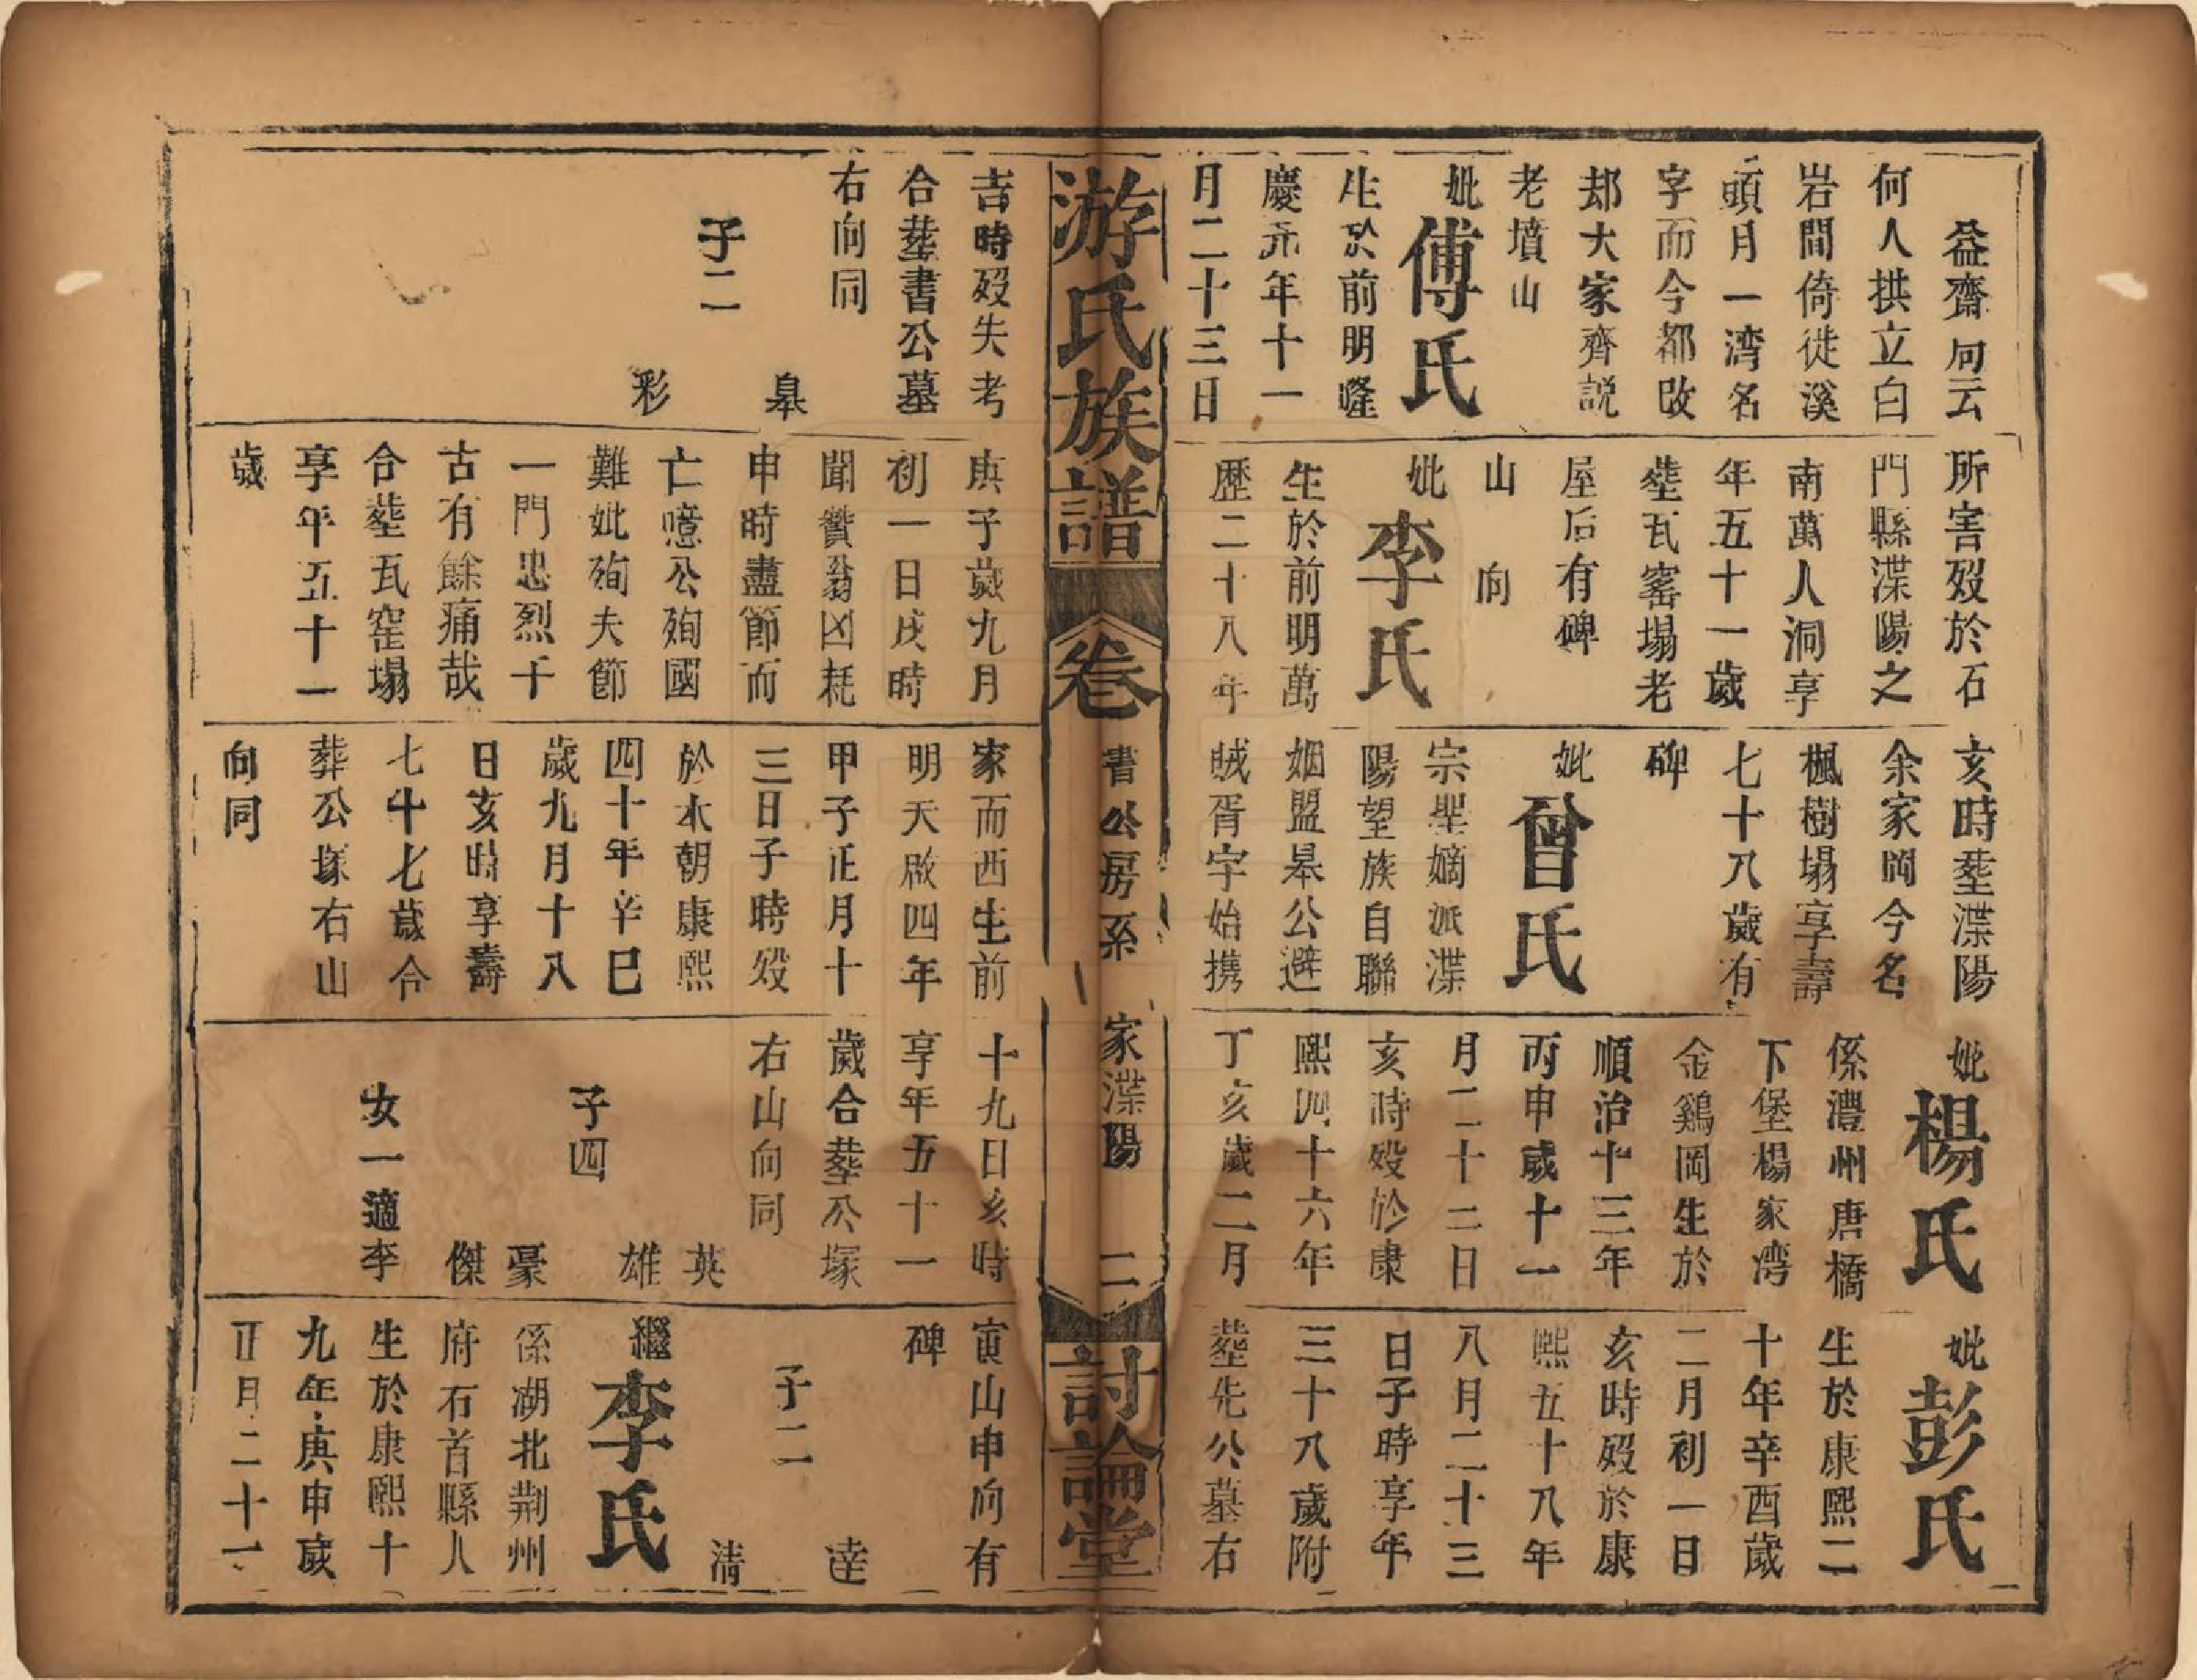 益齋何云
何人拱立白
岩間倚徙溪
頭月一湾名
字而今都改
却大家齊説
老墳山
妣傅氏
生於前明隆
慶元年十一
月二十三日
所害殁於石
門縣渫陽之
南萬人洞享
年五十一歲
塟瓦窰塌老
屋后有碑
山向
妣李氏
生於前明萬
歷二十八年
亥時塟渫陽
余家岡今名
楓樹塌享壽
七十八歲有
碑
妣曾氏
宗聖嫡派渫
陽望族自聯
姻盟皋公避
賊胥宇始携
妣楊氏
係澧州唐橋
下堡楊家湾
金鷄岡生於
順治十三年
丙申歲十一
月二十二日
亥時殁於康
熙四十六年
丁亥歲二月
妣彭氏
生於康熙二
十年辛酉歲
二月初一日
亥時殁於康
熙五十八年
八月二十三
日子時享年
三十八歲附
塟先公墓右
游氏族譜
卷
書公房系 家渫陽 二
討論堂
吉時殁失考
合塟書公墓
右向同
皐
子二
彩
庚子歲九月
初一日戌時
聞贊翁凶耗
申時盡節而
亡噫公殉國
難妣殉夫節
一門忠烈千
古有餘痛哉
合塟瓦窑塌
享年五十一
歲
家而西生前
明天啟四年
甲子正月十
三日子時殁
於本朝康熙
四十年辛巳
歲九月十八
日亥時享壽
七十七歲合
葬公塚右山
向同
十九日亥時
享年五十一
歲合塟公塚
右山向同
英
雄
子四
豪
傑
女一適李
寅山申向有
碑
達
子二
清
繼李氏
係湖北荆州
府石首縣人
生於康熙十
九年庚申歲
正月二十一